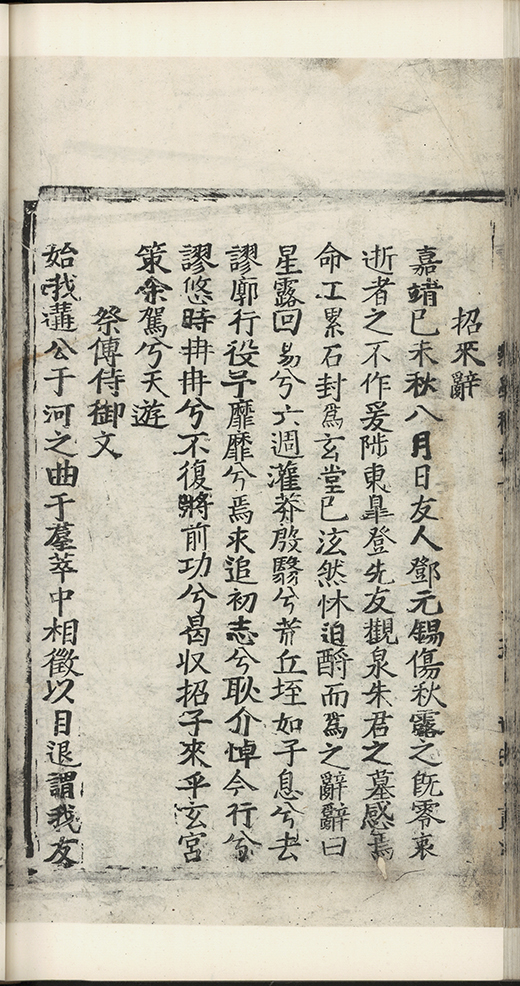 招來辭
嘉靖己未秋八月日友人鄧元錫傷秋露之旣零哀
逝者之不作爰陟東皐登先友觀泉朱君之墓感焉
命工累石封爲玄堂已泫然怵迫酹而爲之辭辭曰
星露回易兮六週灌莽殷翳兮荒丘垤如子息兮去
謬廓行役予靡靡兮焉求追初志兮耿介悼今行兮
謬悠時冉冉兮不復將前功兮曷收招子來乎玄宮
策余駕兮天遊
祭傅侍御文
始我遘公于河之曲于羣萃中相徵以目退謂我友